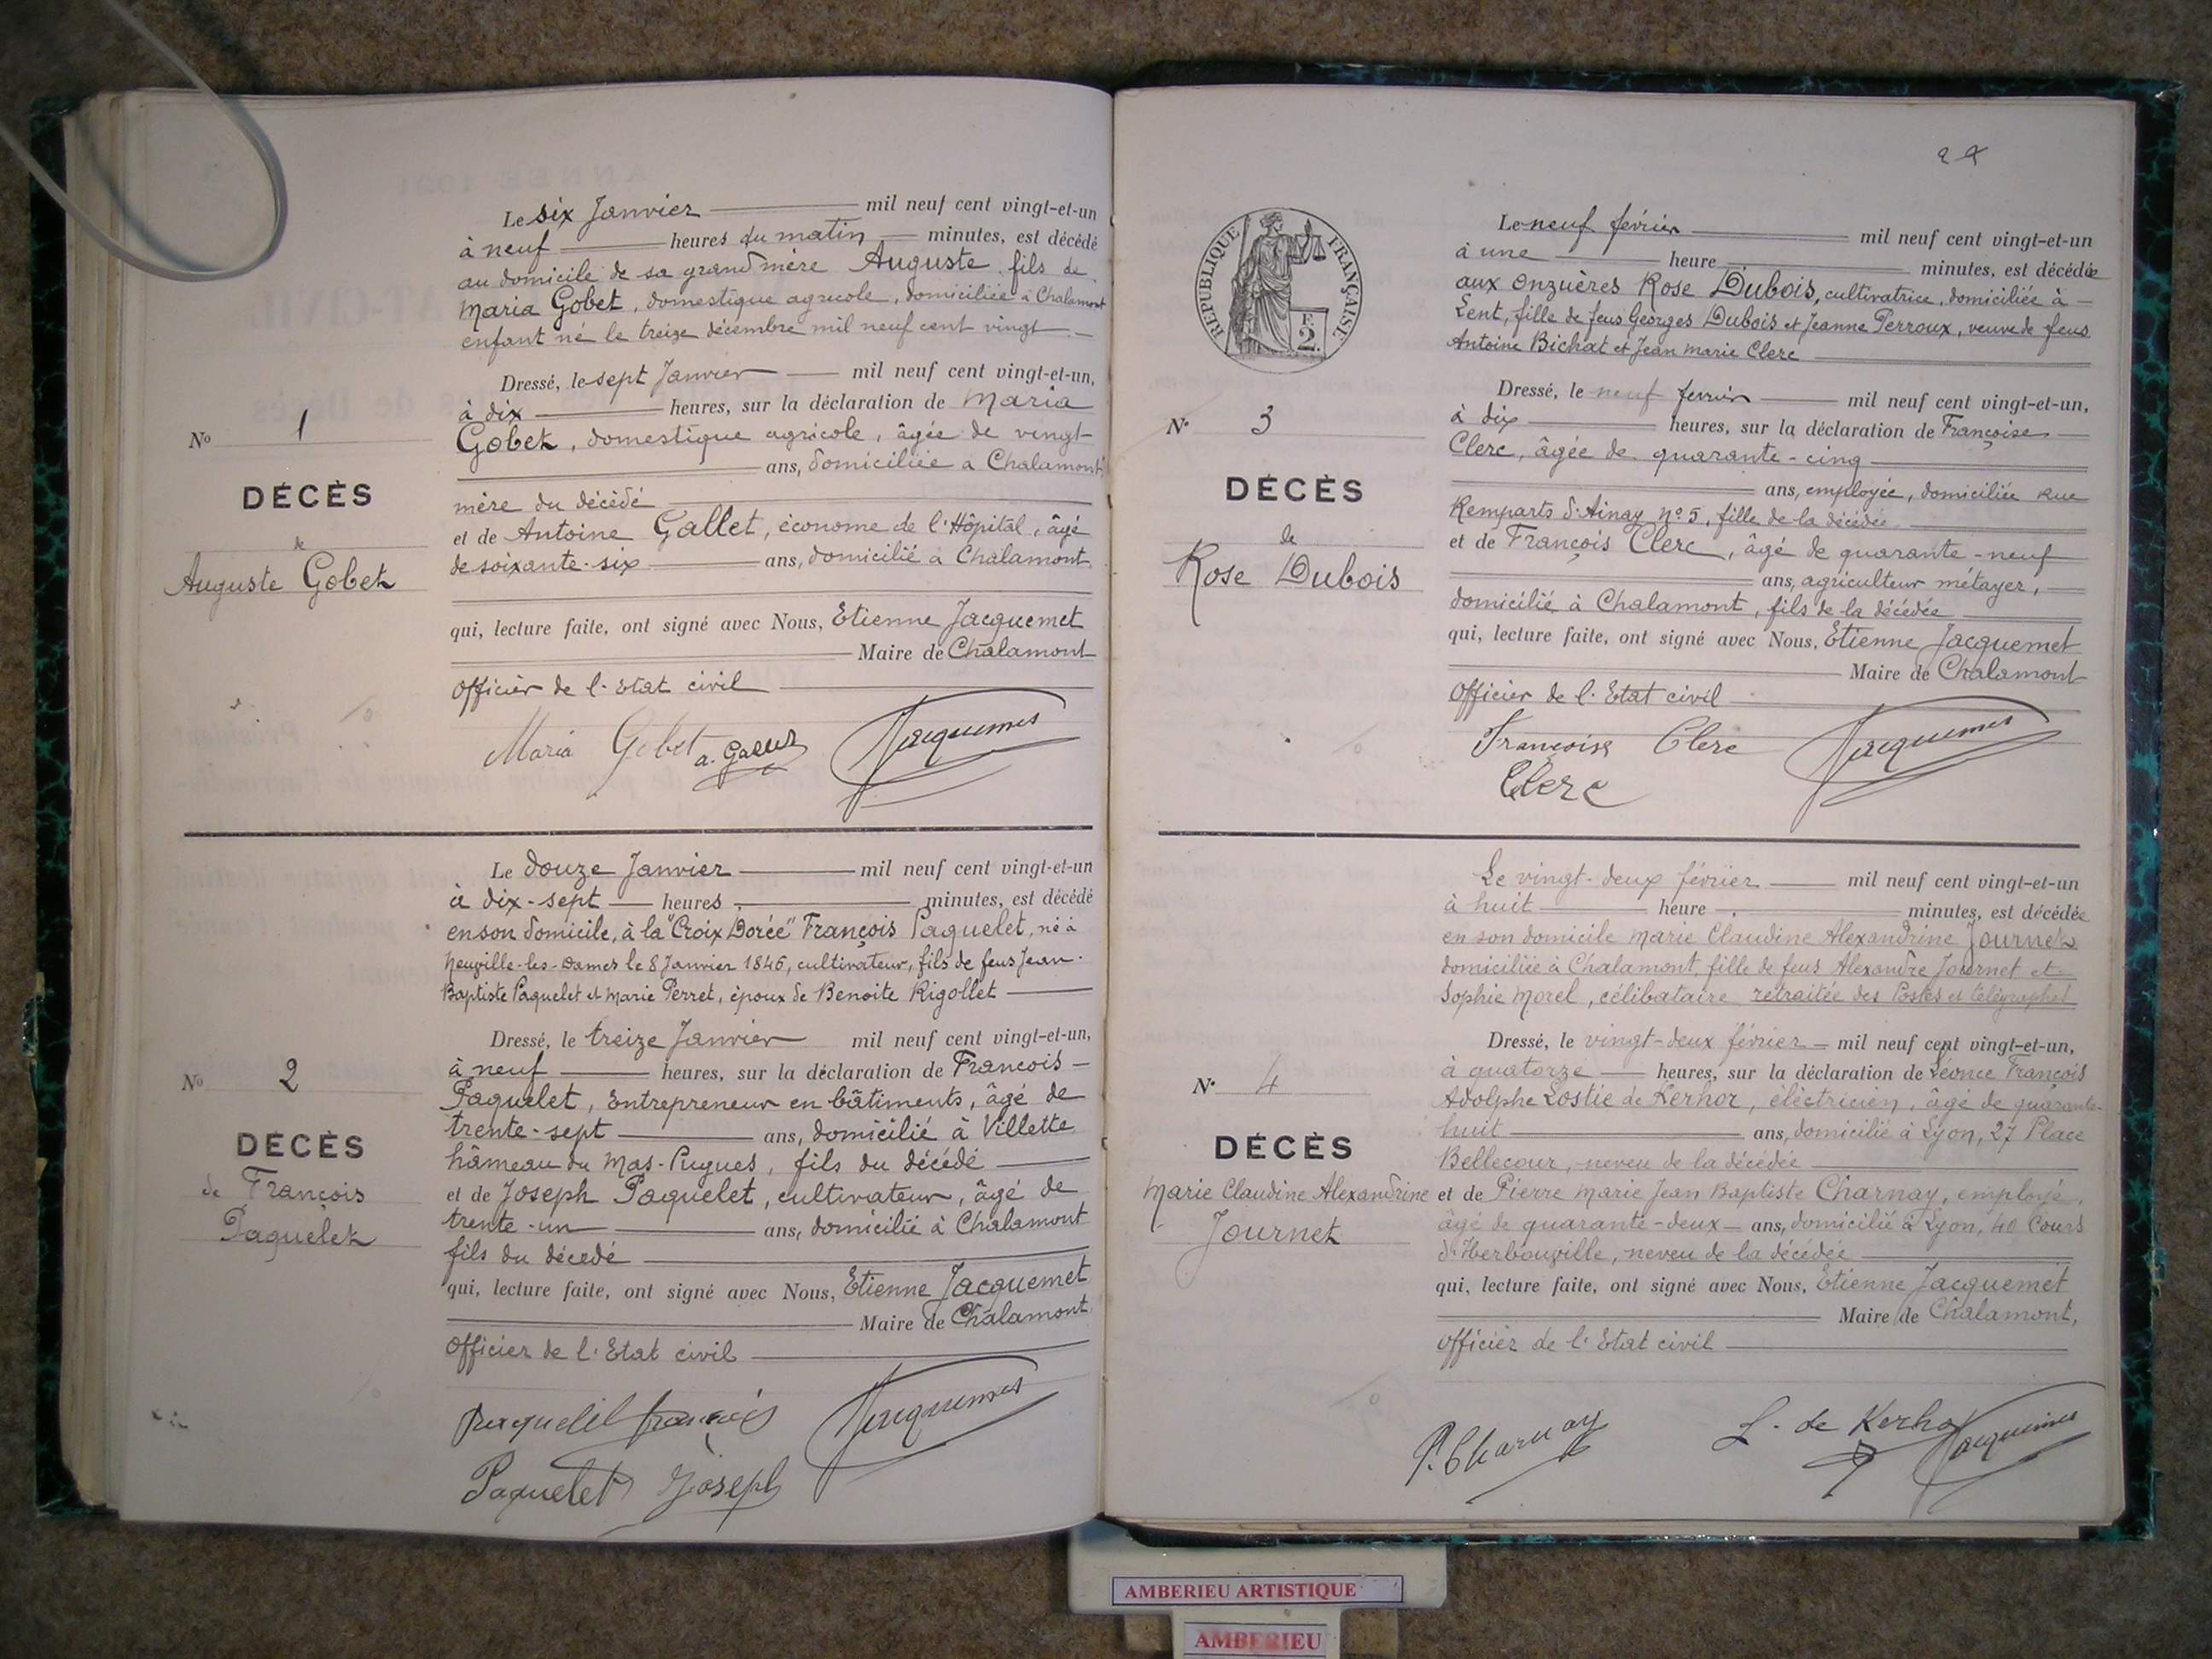 Le six Janvier mil neuf cent vingt-et-un
à neuf heures du matin minutes, est décédé
au domicile de sa grand mère Auguste fils de
Maria Gobet, domestique agricole, domiciliée à Chalamont
enfant né le treize décembre mil neuf cent vingt
Dressé, le sept Janvier mil neuf cent vingt-et-un,
à dix heures, sur la déclaration de Maria
Gobet, domestique agricole, âgée de vingt
ans, domiciliée à Chalamont
mère du décédé
et de Antoine Gallet, économe de l'Hôpital, âgé
de soixante-six ans, domicilié à Chalamont
qui, lecture faite, ont signé avec Nous, Etienne Jacquemet
Maire de Chalamont
Officier de l'Etat civil
Maria Gobet a. Gallet Jacquemet
No 1
DÉCÈS
de
Auguste Gobet
Le douze Janvier mil neuf cent vingt-et-un
à dix-sept heures minutes, est décédé
en son domicile, à la "Croix Dorée" François Paquelet, né à
Neuville-les-Dames le 8 Janvier 1846, cultivateur, fils de feus Jean-
Baptiste Paquelet et Marie Perret, époux de Benoite Rigollet
Dressé, le treize Janvier mil neuf cent vingt-et-un,
à neuf heures, sur la déclaration de François
Paquelet, Entrepreneur en bâtiments, âgé de
trente-sept ans, domicilié à Villette
hâmeau du Mas-Pugues, fils du décédé
et de Joseph Paquelet, cultivateur, âgé de
trente-un ans, domicilié à Chalamont
fils du décédé
qui, lecture faite, ont signé avec Nous, Etienne Jacquemet
Maire de Chalamont
Officier de l'Etat civil
Paquelet françois Jacquemet
Paquelet Joseph
No 2
DÉCÈS
de François
Paquelet
2
RÉPUBLIQUE FRANÇAISE
2 F.
Le neuf février mil neuf cent vingt-et-un
à une heure minutes, est décédée
aux Onzuères Rose Dubois, cultivatrice, domiciliée à
Lent, fille de feus Georges Dubois et Jeanne Perroux, veuve de feus
Antoine Bichat et Jean Marie Clerc
Dressé, le neuf fevrier mil neuf cent vingt-et-un,
à dix heures, sur la déclaration de Françoise
Clerc, âgée de quarante-cinq
ans, employée, domiciliée Rue
Remparts d'Ainay no 5, fille de la décédée
et de François Clerc, âgé de quarante-neuf
ans, agriculteur métayer,
domicilié à Chalamont, fils de la décédée
qui, lecture faite, ont signé avec Nous, Etienne Jacquemet
Maire de Chalamont
Officier de l'Etat civil
Françoise Clerc Jacquemet
Clerc
No 3
DÉCÈS
de
Rose Dubois
Le vingt-deux février mil neuf cent vingt-et-un
à huit heure minutes, est décédée
en son domicile Marie Claudine Alexandrine Journet
domiciliée à Chalamont, fille de feus Alexandre Journet et
Sophie Morel, célibataire retraitée des Postes et télégraphes
Dressé, le vingt-deux février mil neuf cent vingt-et-un,
à quatorze heures, sur la déclaration de Léonce François
Adolphe Lostie de Kerhor, électricien, âgé de quarante-
huit ans, domicilié à Lyon, 27 Place
Bellecour, neveu de la décédée
et de Pierre Marie Jean Baptiste Charnay, employé,
âgé de quarante-deux ans, domicilié à Lyon, 40 Cours
d'Herbouville, neveu de la décédée
qui, lecture faite, ont signé avec Nous, Etienne Jacquemet
Maire de Chalamont,
Officier de l'Etat civil
P. Charnay L. de Kerhor Jacquemet
No 4
DÉCÈS
Marie Claudine Alexandrine
Journet
AMBERIEU ARTISTIQUE
AMBERIEU